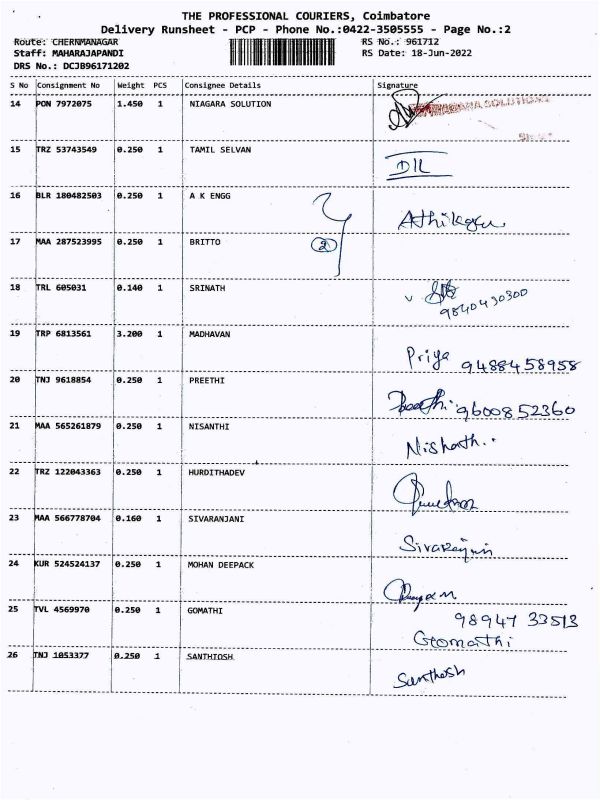 THE PROFESSIONAL COURIERS, Coimbatore
Delivery Runsheet - PCP - Phone No.:0422-3505555 - Page No.:2
Route: CHERNMANAGAR RS No.: 961712
Staff: MAHARAJAPANDI RS Date: 18-Jun-2022
DRS No.: DCJB96171202
S No Consignment No Weight PCS Consignee Details Signature
14 PON 7972075 1.450 1 NIAGARA SOLUTION
15 TRZ 53743549 0.250 1 TAMIL SELVAN
16 BLR 180482503 0.250 1 A K ENGG
17 MAA 287523995 0.250 1 BRITTO 2
18 TRL 605031 0.140 1 SRINATH
9840430300
19 TRP 6813561 3.200 1 MADHAVAN
Priya 9488458958
20 TNJ 9618854 0.250 1 PREETHI
Preethi 9600852360
21 MAA 565261879 0.250 1 NISANTHI
22 TRZ 122043363 0.250 1 HURDITHADEV
23 MAA 566778704 0.160 1 SIVARANJANI
24 KUR 524524137 0.250 1 MOHAN DEEPACK
25 TVL 4569970 0.250 1 GOMATHI
98947 33513
Gomathi
26 TNJ 1053377 0.250 1 SANTHIOSH
Santhosh